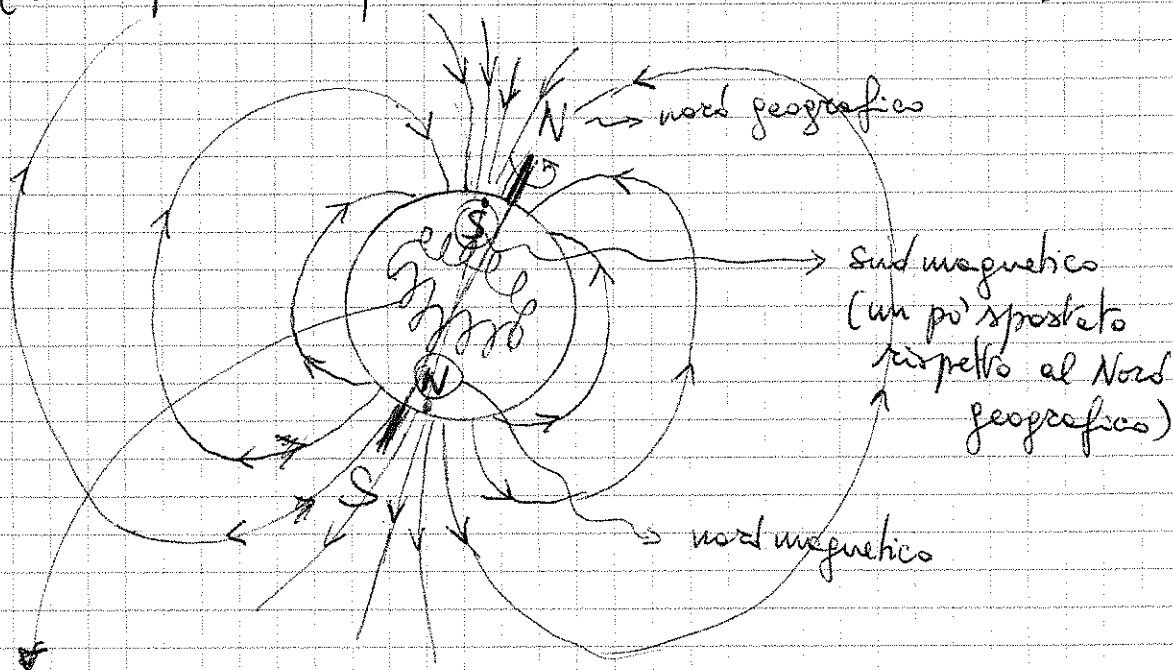 N → nord geografico
S
Sud magnetico
(un pò spostato
rispetto al Nord
geografico)
N
S
nord magnetico